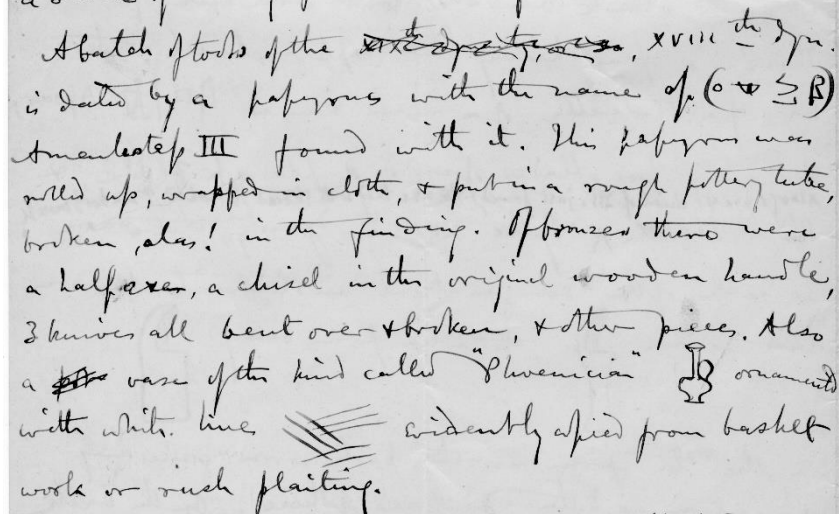 A batch of tools of the XIXth dynasty, or so, XVIIIth dyn.
is dated by a papyrus with the name of
Amenhotep III found with it. This papyrus was
rolled up, wrapped in cloth, & put in a rough pottery tube,
broken, alas! in the finding. Of bronzes there were
a half axes, a chisel in the original wooden handle,
3 knives all bent over & broken, & other pieces. Also
a vase of the kind called "Phoenician" ornamented
with white lines evidently copied from basket
work or rush plaiting.